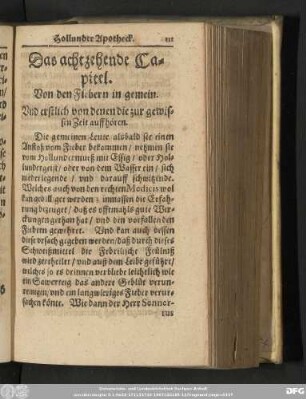 Hollunder Apotheck.
Das achtzehende Ca-
pitel.
Von den Fiebern in gemein.
Vnd erstlich von denen die zur gewis-
sen Zeit auffhören.
Die gemeinen Leute alsbald sie einen
Anstoß vom Fieber bekommen / nehmen sie
vom Hollundermueß mit Essig / oder Hol-
lundergeist / oder von dem Wasser ein / sich
niderlegende / vnd darauff schwitzende.
Welches auch von den rechten Medicis wol
kan gebilliget werden : immassen die Erfah-
rung bezeuget / daß es offtmals gute Wir-
ckungen gethan hat / vnd den vorfallenden
Fiebern gewehret. Vnd kan auch dessen
diese vrsach gegeben werden / daß durch dieses
Schweißmittel die Febrilische Feulniß
wird zertheilet / vnd auß dem Leibe geführet /
welches so es drinnen verbliebe leichtlich wie
ein Sawerteig das andere Geblüt verun-
reinigen, vnd ein langwieriges Fieber verur-
sachen könte. Wie dann der Herr Senner-
tus